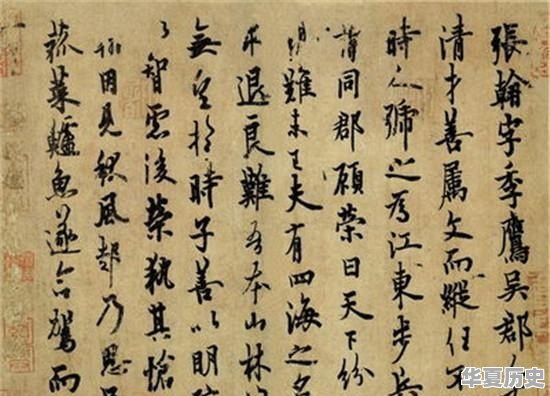 張翰字季鷹吳郡人
清才善屬文而縱任不
時人號之為江東步兵
謂同郡顧榮曰天下紛
禍難未已夫有四海之名
求退良難吾本山林間
無望於時子善以明防
以智慮後榮執其愴
翰因見秋風起乃思
菰菜鱸魚遂命駕而
华夏历史